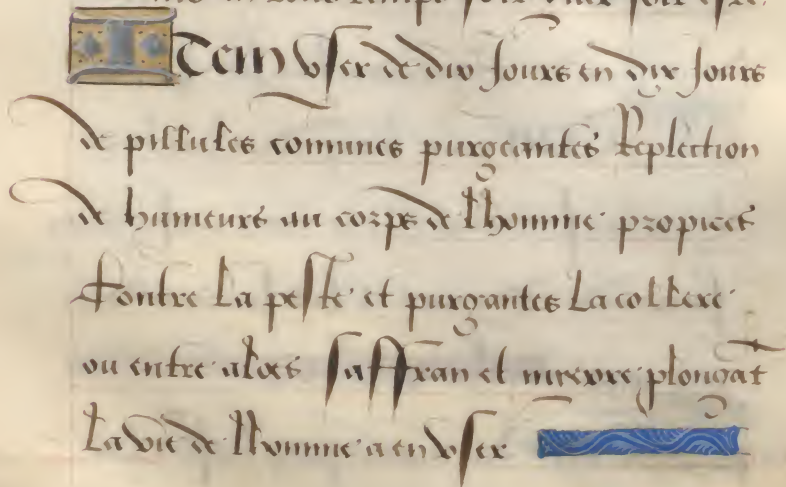 Item vser de dix Jours en dix Jours
de pillules comunes purgeantes Replection
de humeurs au corps de lhomme propices
Contre la peste et purgantes La collere
ou entre aloes saffran et mirre plongat
La vie de lhomme a en vser